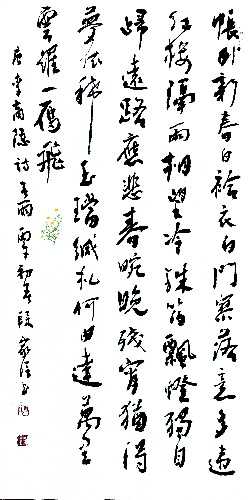 悵卧新春白袷衣白門寥落意多違
紅樓隔雨相望冷珠箔飄燈獨自
歸遠路應悲春晼晚殘宵猶得
夢依稀玉璫緘札何由達萬里
雲羅一雁飛
唐李商隱詩春雨